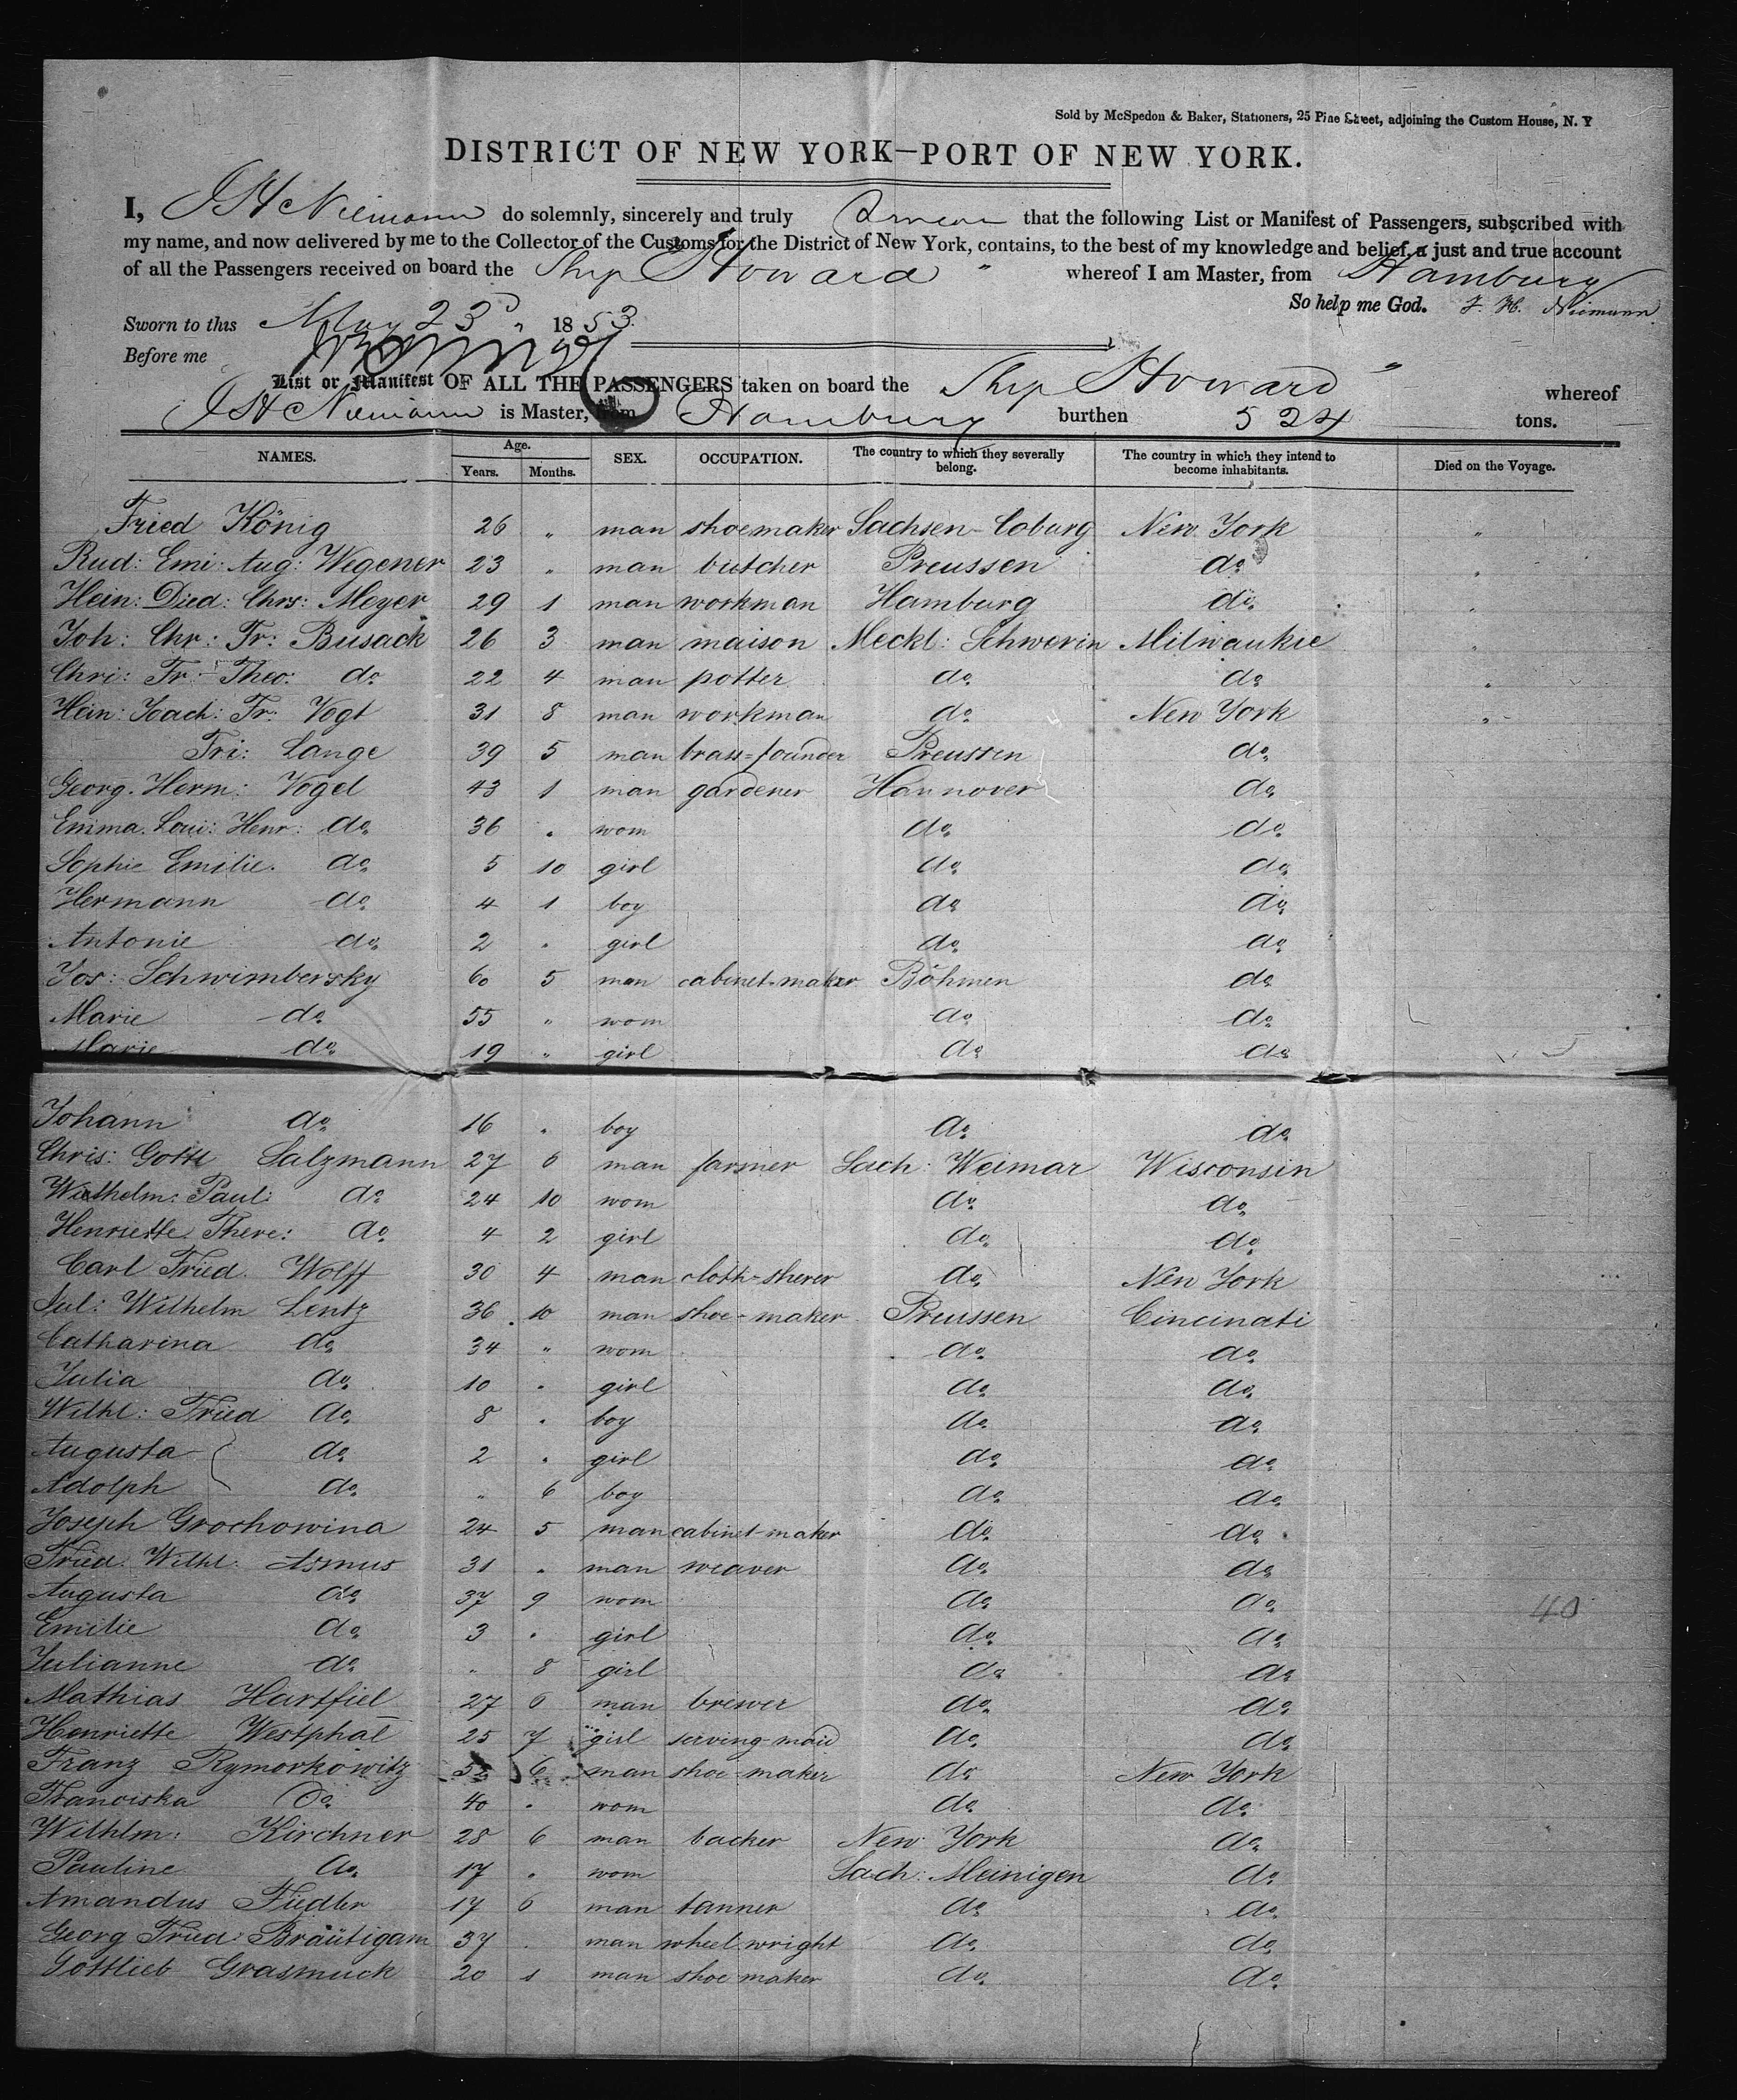 Sold by McSpedon & Baker, Stationers, 25 Pine Street, adjoining the Custom House, N. Y
DISTRICT OF NEW YORK—PORT OF NEW YORK.
I, J H Niemann do solemnly, sincerely and truly swear that the following List or Manifest of Passengers, subscribed with
my name, and now delivered by me to the Collector of the Customs for the District of New York, contains, to the best of my knowledge and belief, a just and true account
of all the Passengers received on board the Ship Howard whereof I am Master, from Hamburg
So help me God. J. H. Niemann.
Sworn to this May 23d 1853.
Before me
List or Manifest OF ALL THE PASSENGERS taken on board the Ship Howard whereof
J H Niemann is Master, from Hamburg burthen 524 tons.
NAMES. Age. Years. Months. SEX. OCCUPATION. The country to which they severally belong. The country in which they intend to become inhabitants. Died on the Voyage.
Fried König 26 " man shoemaker Sachsen-Coburg New York "
Rud: Emi: Aug: Wegener 23 " man butcher Preussen do "
Hein: Died: Chrs: Meyer 29 1 man workman Hamburg do "
Joh: Chr: Fr: Busack 26 3 man maison Meckl: Schwerin Milwaukie "
Chri: Fr: Theo: do 22 4 man potter do do "
Hein: Joach: Fr: Vogt 31 8 man workman do New York "
Fri: Lange 39 5 man brass=founder Preussen do
Georg. Herm: Vogel 43 1 man gardener Hannover do
Emma. Loui: Henr: do 36 " wom do do
Sophie Emilie. do 5 10 girl do do
Hermann do 4 1 boy do do
Antonie do 2 " girl do do
Jos: Schwimbersky 60 5 man cabinet-maker Böhmen do
Marie do 55 " wom do do
Marie do 19 " girl do do
Johann do 16 " boy do do
Chris: Gottl Salzmann 27 6 man farmer Sach: Weimar Wisconsin
Wilhelm: Paul: do 24 10 wom do do
Henriette There: do 4 2 girl do do
Carl Fried. Wolff 30 4 man cloth-sherer do New York
Jul: Wilhelm Lentz 36 10 man shoe-maker Preussen Cincinati
Catharina do 34 " wom do do
Julia do 10 " girl do do
Wilhl: Fried do 8 " boy do do
Augusta do 2 " girl do do
Adolph do " 6 boy do do
Joseph Grochowina 24 5 man cabinet-maker do do
Fried. Wilhl: Asmus 31 " man weaver do do
Augusta do 37 9 wom do do 40
Emilie do 3 " girl do do
Julianne do " 8 girl do do
Mathias Hartfiel 27 6 man brewer do do
Henriette Westphal 25 7 girl serving-maid do do
Franz Rymorkowitz 6 man shoe-maker do New York
Franciska Do 40 " wom do do
Wilhlm: Kirchner 28 6 man backer New York do
Pauline do 17 " wom Sach: Meinigen do
Amandus Fiedler 17 6 man tanner do do
Georg Fried: Bräutigam 37 man wheel wright do do
Gottlieb Grasmuck 20 1 man shoe maker do do